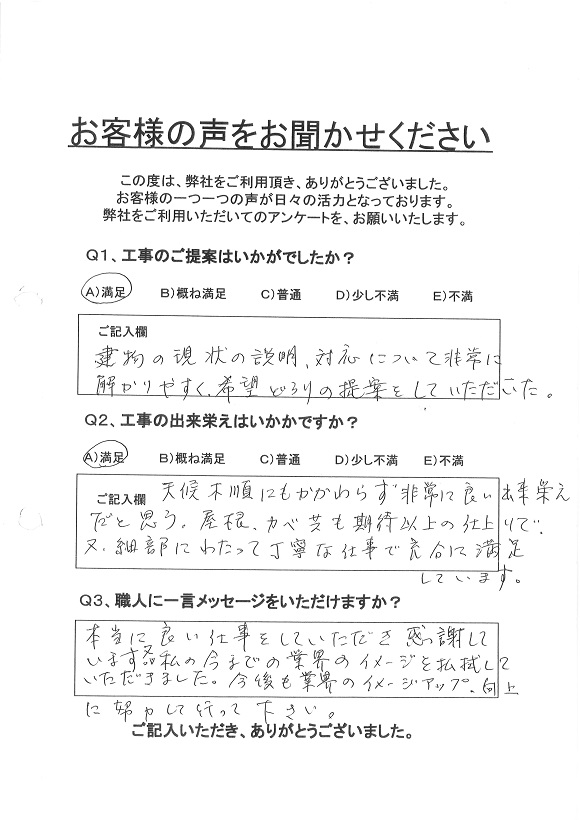 お客様の声をお聞かせください
この度は、弊社をご利用頂き、ありがとうございました。
お客様の一つ一つの声が日々の活力となっております。
弊社をご利用いただいてのアンケートを、お願いいたします。
Q1、工事のご提案はいかがでしたか？
A）満足 B）概ね満足 C）普通 D）少し不満 E）不満
ご記入欄
建物の現状の説明、対応について非常に
解かりやすく、希望どうりの提案をしていただいた。
Q2、工事の出来栄えはいかかですか？
A）満足 B）概ね満足 C）普通 D）少し不満 E）不満
ご記入欄 天候不順にもかかわらず非常に良い出来栄え
だと思う。屋根、カベ共も期待以上の仕上りで、
又、細部にわたって丁寧な仕事で充分に満足
しています。
Q3、職人に一言メッセージをいただけますか？
本当に良い仕事をしていただき感謝して
います。又私の今までの業界のイメージを払拭して
いただきました。今後も業界のイメージアップ、向上
に努力して行って下さい。
ご記入いただき、ありがとうございました。